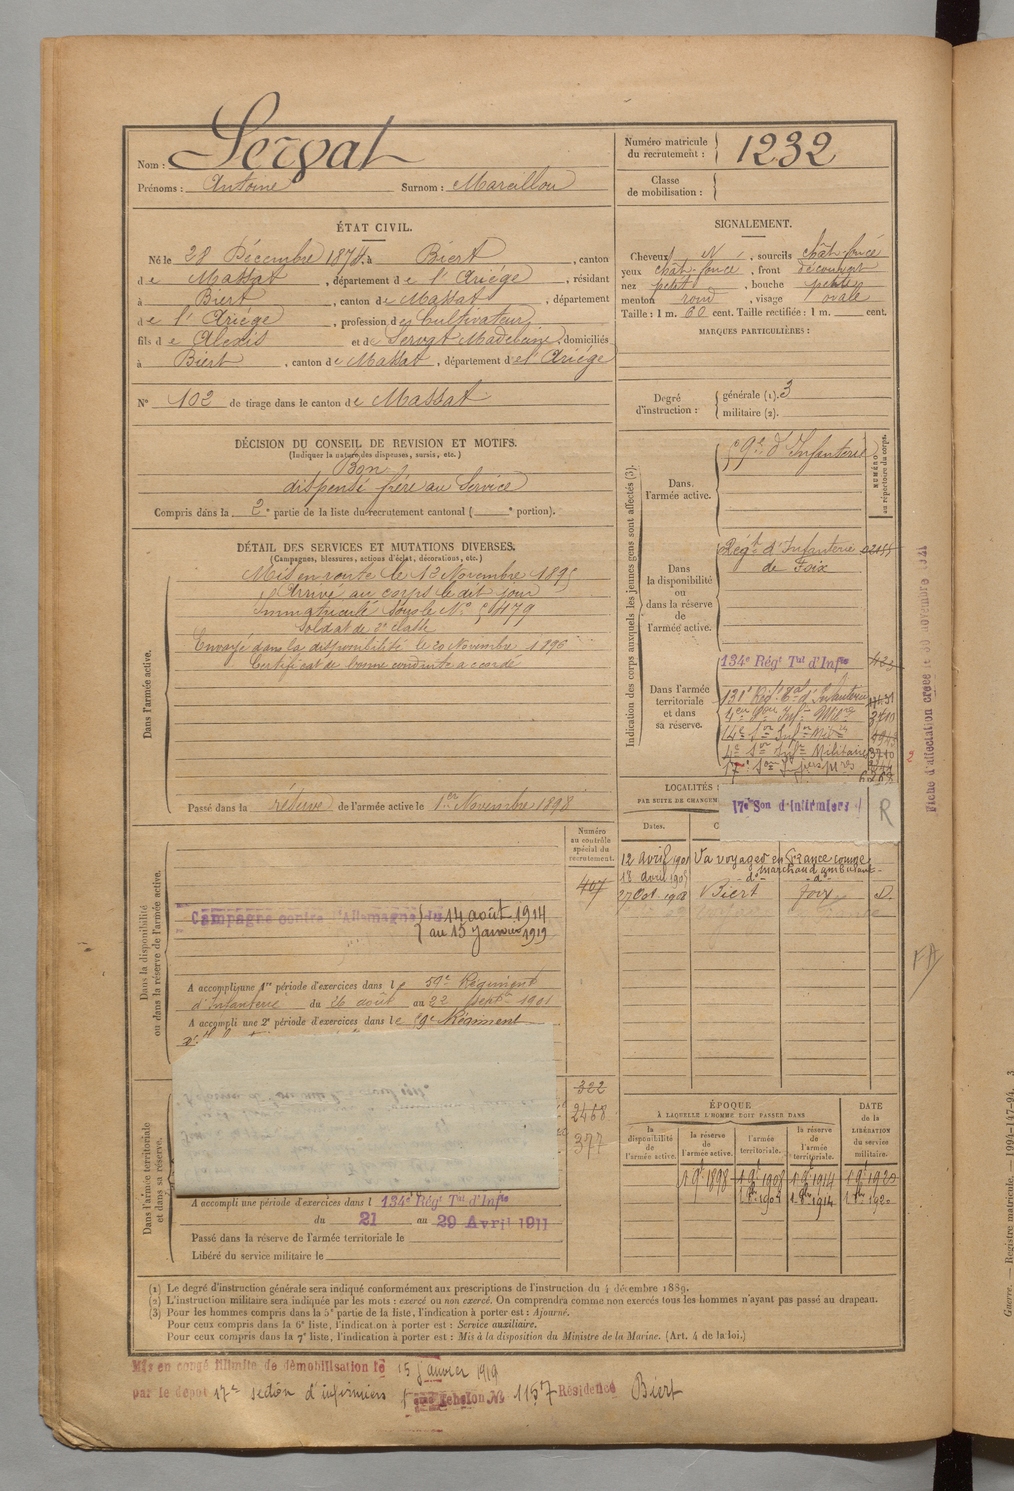 Nom : Servat
Prénoms : Antoine Surnom : Marcillou
Numéro matricule du recrutement : 1232
Classe de mobilisation :
ÉTAT CIVIL.
Né le 28 Décembre 1874, à Biert, canton
de Massat, département de l'Ariège, résidant
à Biert, canton de Massat, département
de l'Ariège, profession de Cultivateur
fils de Alexis et de Servat Madeleine, domiciliés
à Biert, canton de Massat, département de l'Ariège
N° 102 de tirage dans le canton de Massat
SIGNALEMENT.
Cheveux N, sourcils chât-foncé
yeux chât-foncé, front découvert
nez petit, bouche petite
menton rond, visage ovale
Taille : 1 m. 60 cent. Taille rectifiée : 1 m. cent.
MARQUES PARTICULIÈRES :
Degré d'instruction : générale (1). 3
militaire (2).
DÉCISION DU CONSEIL DE REVISION ET MOTIFS.
(Indiquer la nature des dispenses, sursis, etc.)
Bon
dispensé frère au Service
Compris dans la 2e partie de la liste du recrutement cantonal ( e portion).
DÉTAIL DES SERVICES ET MUTATIONS DIVERSES.
(Campagnes, blessures, actions d'éclat, décorations, etc.)
Dans l'armée active.
Mis en route le 13 Novembre 1895
Arrivé au corps le dit jour
Immatriculé sous le N°
Soldat de 2e classe
Envoyé dans la disponibilité le 20 Novembre 1896
Certificat de bonne conduite accordé
Passé dans la réserve de l'armée active le 1er Novembre 1898
Indication des corps auxquels les jeunes gens sont affectés (3).
NUMÉRO au répertoire du corps.
Dans l'armée active.
d'Infanterie
Dans la disponibilité ou dans la réserve de l'armée active.
Régt d'Infanterie
de Foix
Dans l'armée territoriale et dans sa réserve.
134e Régt Tal d'Infie
131e Régt Tal d'Infanterie
3710
Militaire 3710
17e Son d'Infirmiers R
LOCALITÉS
PAR SUITE DE CHANGEM
Dates.
12 avril 1901 Va voyager en France comme
marchand ambulant
18 avril 1905 -do- -do-
27 Oct 1908 Biert Foix D.
Numéro au contrôle spécial du recrutement.
407
Dans la disponibilité ou dans la réserve de l'armée active.
Campagne contre l'Allemagne du 14 août 1914
au 15 Janvier 1919
A accompli une 1re période d'exercices dans le 59e Régiment
d'Infanterie du 26 août au 22 Septbre 1901
A accompli une 2e période d'exercices dans le Régiment
322
2468
377
Dans l'armée territoriale et dans sa réserve.
A accompli une période d'exercices dans l 134e Régt Tal d'Infie
du 21 au 29 Avril 1911
Passé dans la réserve de l'armée territoriale le
Libéré du service militaire le
ÉPOQUE
À LAQUELLE L'HOMME DOIT PASSER DANS
la disponibilité de l'armée active.
la réserve de l'armée active.
l'armée territoriale.
la réserve de l'armée territoriale.
DATE de la LIBÉRATION du service militaire.
1 9bre 1898 1 9bre 1908 1 9bre 1914 1 9bre 1920
(1) Le degré d'instruction générale sera indiqué conformément aux prescriptions de l'instruction du 4 décembre 1889.
(2) L'instruction militaire sera indiquée par les mots : exercé ou non exercé. On comprendra comme non exercés tous les hommes n'ayant pas passé au drapeau.
(3) Pour les hommes compris dans la 5e partie de la liste, l'indication à porter est : Ajourné.
Pour ceux compris dans la 6e liste, l'indication à porter est : Service auxiliaire.
Pour ceux compris dans la 7e liste, l'indication à porter est : Mis à la disposition du Ministre de la Marine. (Art. 4 de la loi.)
Mis en congé illimité de démobilisation le 15 Janvier 1919
par le dépôt 17e section d'infirmiers échelon N° 1157 Résidence Biert
Fiche d'affectation créée le
FA
Guerre. — Registre matricule. — 1994-147-94. 3